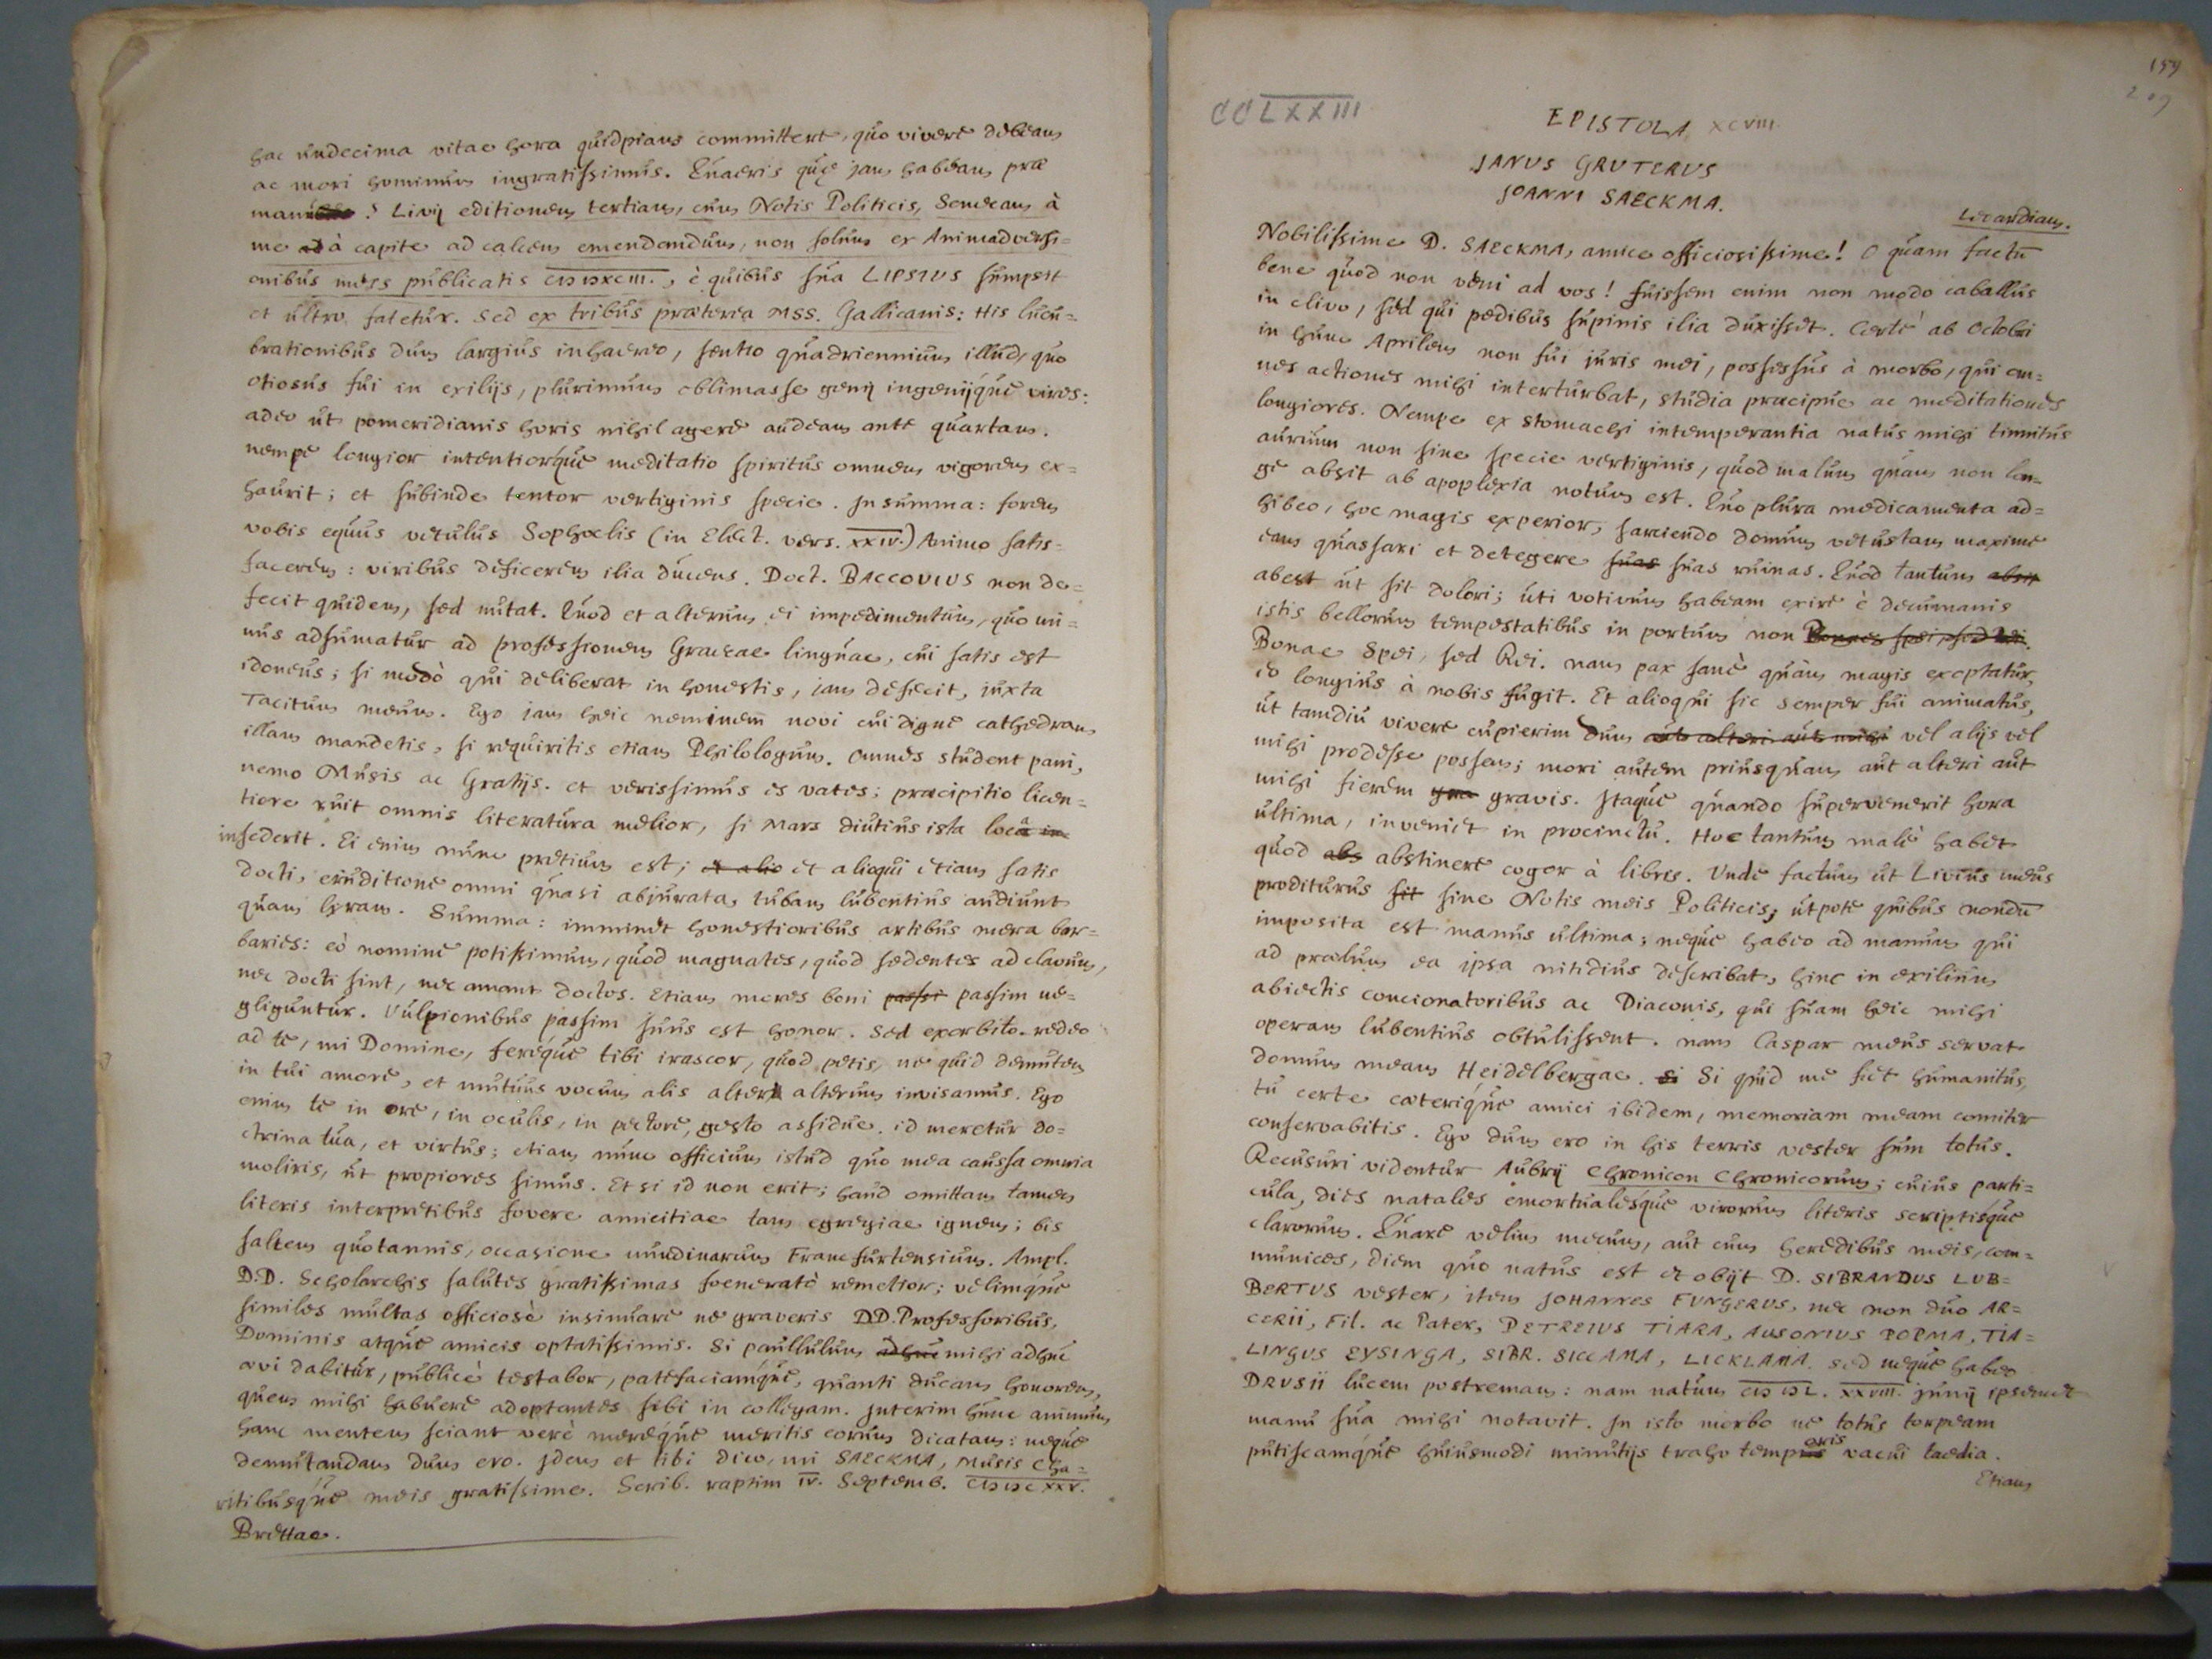 hac undecima vitae hora quidpiam committere, quo vivere debeam
ac mori hominum ingratissimus. Quaeris quae jam habeam prae
manu? Livij editionem tertiam, cum Notis Politicis, Senecam à
me à capite ad calcem emendandum, non solum ex Animadversi=
onibus meis publicatis CIƆIƆXCIII., è quibus sua LIPSIUS sumpsit
et ultro fatetur. Sed ex tribus praeterea MSS. Gallicanis: His lucu=
brationibus dum largius inhaereo, sentio quadriennium illud, quo
otiosus fui in exilijs, plurimum oblimasse genij ingenijque vires:
adeo ut pomeridianis horis nihil agere audeam ante quartam.
nempe longior intentiorque meditatio spiritus omnem vigorem ex=
haurit; et subinde tentor vertiginis specie. In summa: forem
vobis equus vetulus Sophoclis (in Elect. vers. XXIV.) Animo satis=
facerem: viribus deficerem ilia ducens. Doct. BACCOVIUS non de=
fecit quidem, sed nutat. Quod et alterum ei impedimentum, quo mi=
nus adsumatur ad professionem Graecae linguae, cui satis est
idoneus; si modò qui deliberat in honestis, jam defecit, juxta
Tacitum meum. Ego jam heic neminem novi cui digne cathedram
illam mandetis, si requiritis etiam Philologum. omnes student pani,
nemo Musis ac Gratijs. et verissimus es vates; praecipitio licen=
tiore ruit omnis literatura melior, si Mars diutius ista loca in
insederit. Ei enim nunc pretium est; et alio et alioqui etiam satis
docti, eruditione omni quasi abjurata, tubam lubentius audiunt
quam lyram. Summa: imminet honestioribus artibus mera bar=
baries: eò nomine potissimum, quod magnates, quod sedentes ad clavum,
nec docti sint, nec amant doctos. Etiam meres boni passi passim ne=
gliguntur. Vulpionibus passim suus est honor. Sed exorbito. redeo
ad te, mi Domine, fereque tibi irascor, quod petis, ne quid demutem
in tui amore, et mutuus vocum alis alter alterum invisamus. Ego
enim te in ore, in oculis, in pectore, gesto assidue. id meretur do=
ctrina tua, et virtus; etiam nunc officium istud quo mea caussa omnia
moliris, ut propiores simus. Et si id non erit; haud omittam tamen
literis interpretibus fovere amicitiae tam egregiae ignem; bis
saltem quotannis, occasione nundinarum Francfurtensium. Ampl.
D.D. Scholarchis salutes gratissimas foeneratò remetior; velimque
similes multas officiosè insinuare ne graveris DD. Professoribus,
Dominis atque amicis optatissimis. Si paullulum adhuc mihi adhuc
avi dabitur, publicè testabor, patefaciamque, quanti ducam honorem,
quem mihi habuere adoptantes sibi in collegam. Interim hunc animum
hanc mentem sciant verè mereque meritis eorum dicatam: neque
demutandam dum ero. Idem et tibi dico, mi SAECKMA, Musis Cha=
ritibusque meis gratissime. Scrib. raptim IV. Septemb. CIƆIƆCXXV.
Brettae.
159
209
CCLXXIII
EPISTOLA XCVIII
JANUS GRUTERUS
JOANNI SAECKMA.
Leoardiam.
Nobilissime D. SAECKMA, amice officiosissime! O quam factū
bene quod non veni ad vos! fuissem enim non modo caballus
in clivo, sed qui pedibus supinis ilia duxisset. Certè ab Octobri
in hunc Aprilem non fui juris mei, possessus à morbo, qui om=
nes actiones mihi interturbat, studia praecipue ac meditationes
longiores. Nempe ex stomachi intemperantia natus mihi tinnitus
aurium non sine specie vertiginis, quod malum quam non lon=
ge absit ab apoplexia notum est. Quo plura medicamenta ad=
hibeo, hoc magis experior, sarciendo domum vetustam maxime
eam quassari et detegere suas suas ruinas. Quod tantum absit
abest ut sit dolori; uti votivum habeam exire è decumanis
istis bellorum tempestatibus in portum non Bonae spei, sed Rei.
Bonae Spei, sed Rei. nam pax sanè quàm magis exoptatur,
eo longius à nobis fugit. Et alioqui sic semper fui animatus,
ut tamdiu vivere cupierim dum aut alteri aut mihi vel alijs vel
mihi prodesse possem; mori autem priusquam aut alteri aut
mihi fierem gra gravis. Itaque quando supervenerit hora
ultima, inveniet in procinctu. Hoc tantum malè habet
quod abs abstinere cogor à libris. Unde factum ut Livius meus
proditurus sit sine Notis meis Politicis; utpote quibus nondū
imposita est manus ultima; neque habeo ad manum qui
ad praelum ea ipsa nitidius describat, hinc in exilium
abiectis concionatoribus ac Diaconis, qui suam heic mihi
operam lubentius obtulissent. nam Caspar meus servat
domum meam Heidelbergae. si Si quid me fiet humanitus,
tu certe caeterique amici ibidem, memoriam meam comiter
conservabitis. Ego dum ero in his terris vester sum totus.
Recusuri videntur Aubrij Chronicon Chronicorum; cuius parti=
cula, dies natales emortualesque virorum literis scriptisque
clarorum. Quare velim mecum, aut cum heredibus meis, com=
munices, diem quo natus est et obijt D. SIBRANDUS LUB=
BERTUS vester, item JOHANNES FUNGERUS, nec non duo AR=
CERII, Fil. ac Pater, PETREIUS TIARA, AUSONIUS POPMA, TIA=
LINGUS EYSINGA, SIBR. SICCAMA, LICKLAMA. sed neque habeo
DRUSII lucem postremam: nam natum CIƆIƆL. XXVIII. junij ipsemet
manu sua mihi notavit. In isto morbo ne totus torpeam
putiscamque huiusmodi minutijs traho temporis vacui taedia.
Etiam